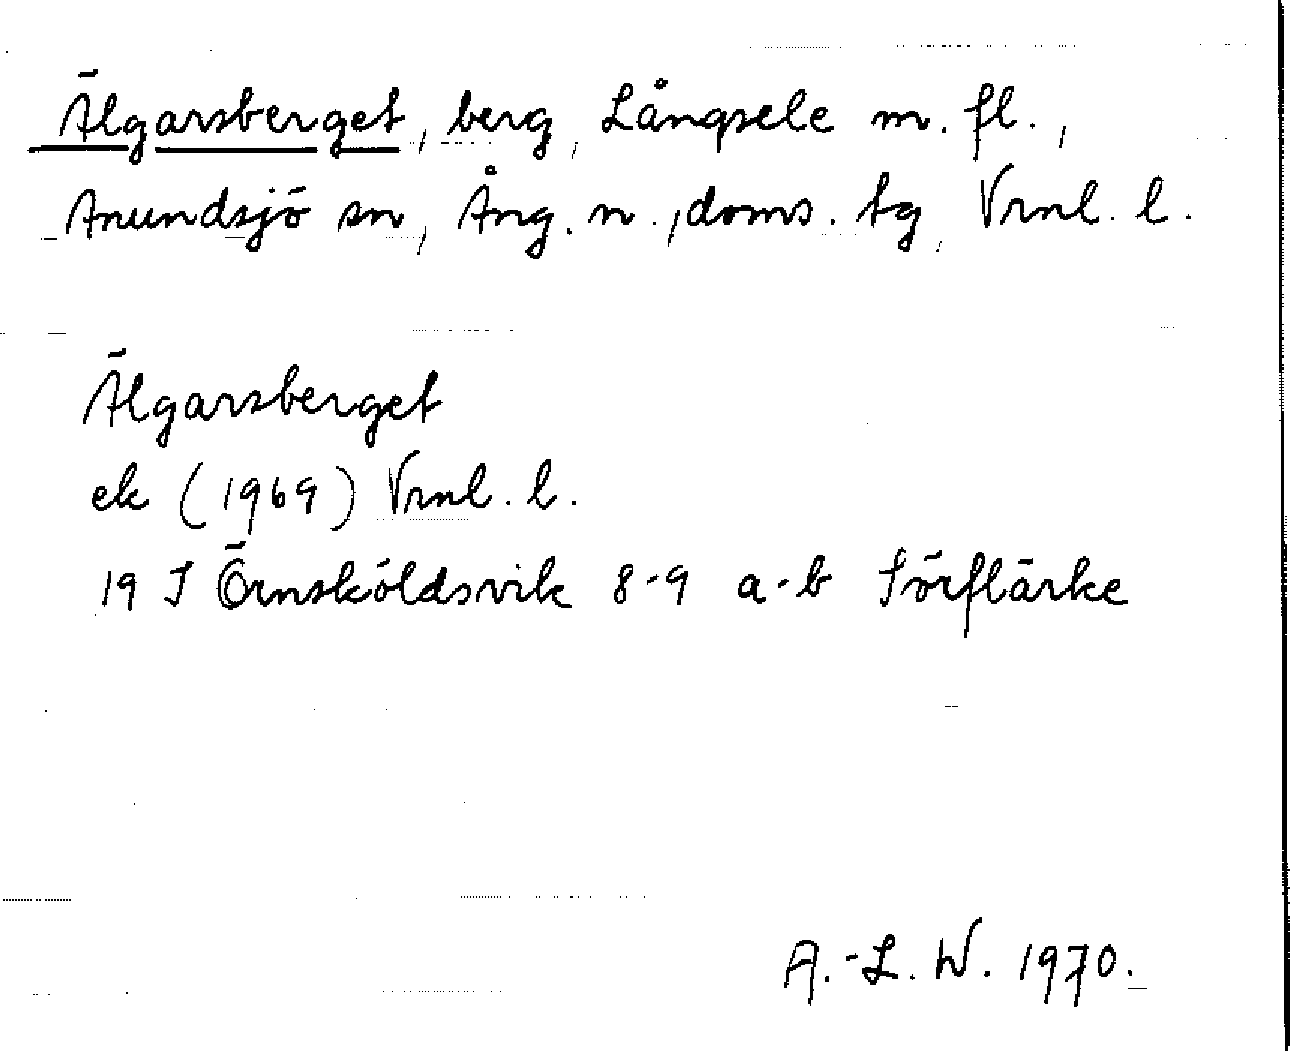 Älgarsberget, berg, Långsele m. fl.,
Anundsjö sn, Ång. n., doms. tg, Vrnl. l.
Älgarsberget
ek (1969) Vrnl. l.
19 J Örnsköldsvik 8-9 a-b Sörflärke
A.-L. W. 1970.